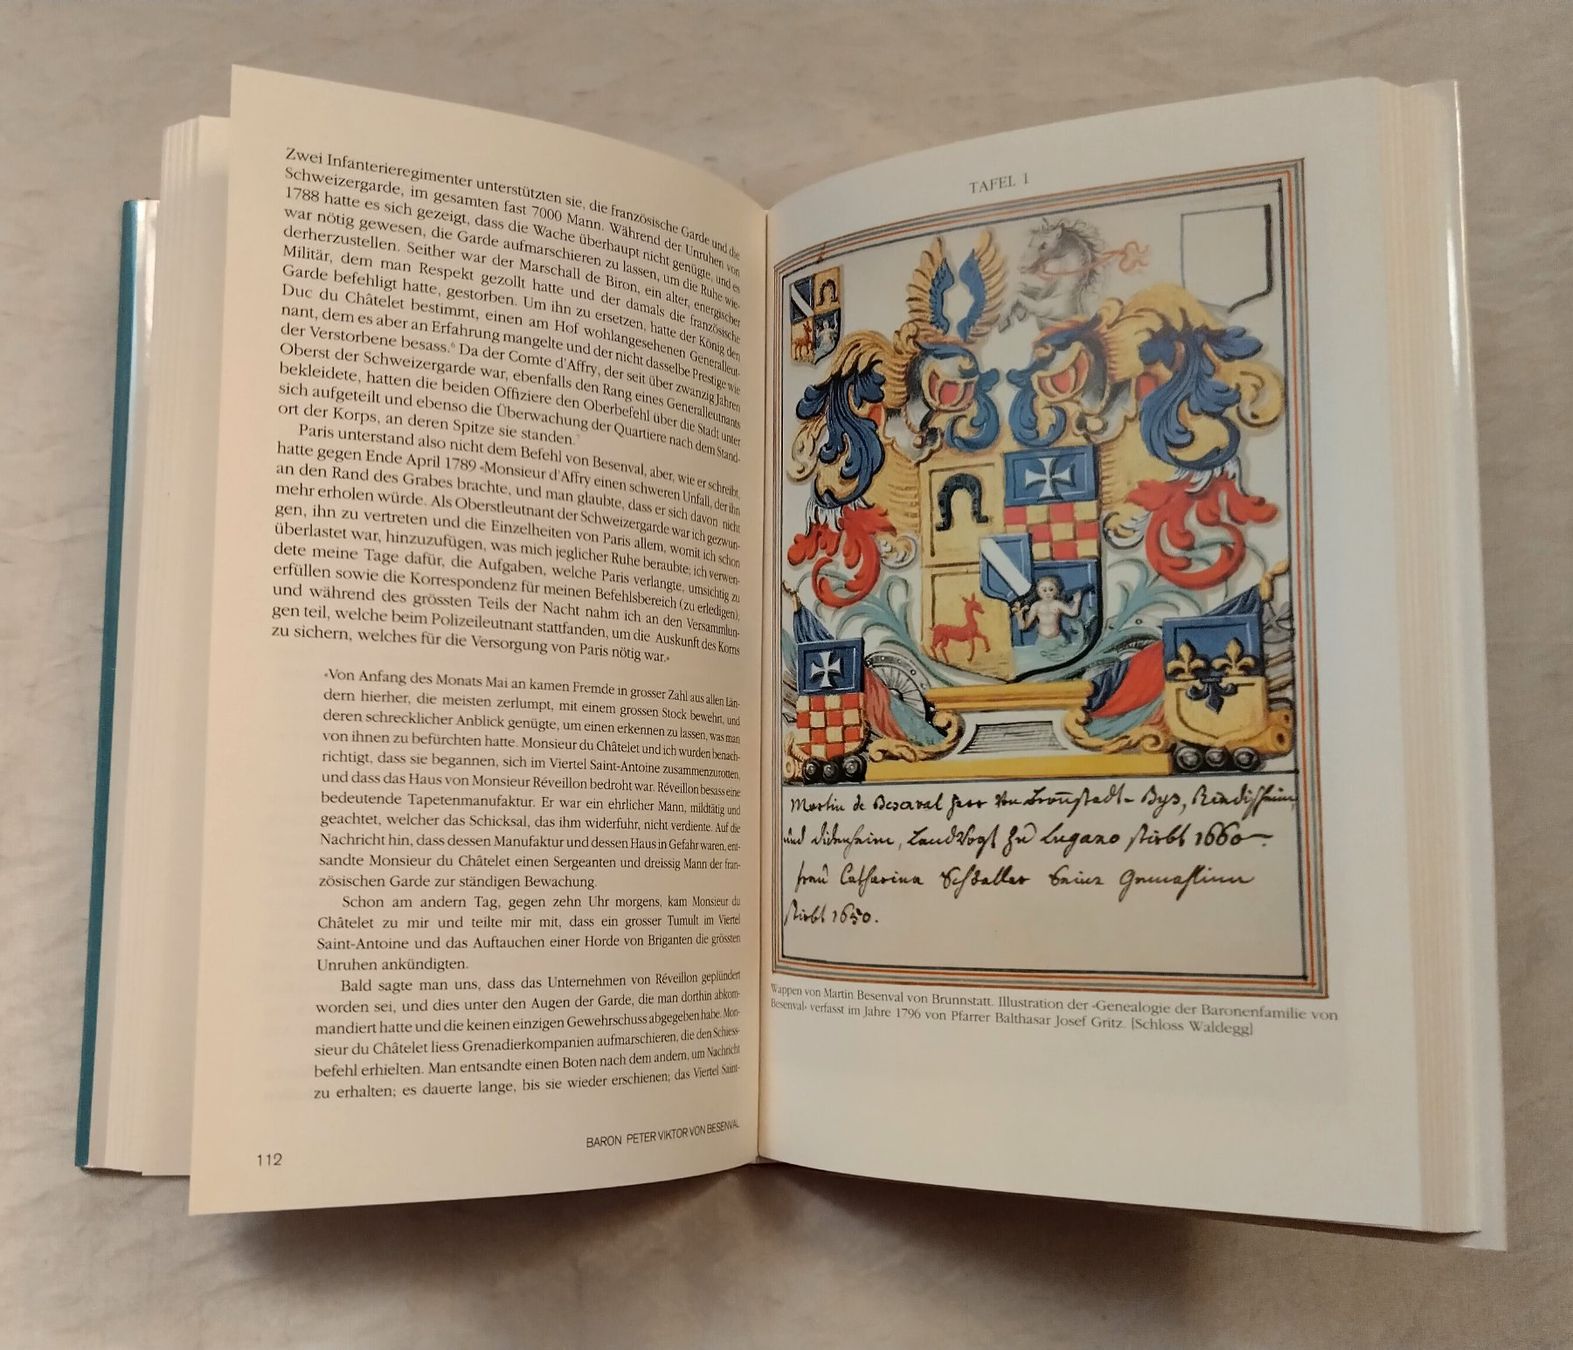 Zwei Infanterieregimenter unterstützten sie, die französische Garde und die
Schweizergarde, im gesamten fast 7000 Mann. Während der Unruhen von
1788 hatte es sich gezeigt, dass die Wache überhaupt nicht genügte, und es
war nötig gewesen, die Garde aufmarschieren zu lassen, um die Ruhe wie-
derherzustellen. Seither war der Marschall de Biron, ein alter, energischer
Militär, dem man Respekt gezollt hatte und der damals die französische
Garde befehligt hatte, gestorben. Um ihn zu ersetzen, hatte der König den
Duc du Châtelet bestimmt, einen am Hof wohlangesehenen Generalleut-
nant, dem es aber an Erfahrung mangelte und der nicht dasselbe Prestige wie
der Verstorbene besass.⁶ Da der Comte d'Affry, der seit über zwanzig Jahren
Oberst der Schweizergarde war, ebenfalls den Rang eines Generalleutnants
bekleidete, hatten die beiden Offiziere den Oberbefehl über die Stadt unter
sich aufgeteilt und ebenso die Überwachung der Quartiere nach dem Stand-
ort der Korps, an deren Spitze sie standen.⁷
Paris unterstand also nicht dem Befehl von Besenval, aber, wie er schreibt,
hatte gegen Ende April 1789 «Monsieur d'Affry einen schweren Unfall, der ihn
an den Rand des Grabes brachte, und man glaubte, dass er sich davon nicht
mehr erholen würde. Als Oberstleutnant der Schweizergarde war ich gezwun-
gen, ihn zu vertreten und die Einzelheiten von Paris allem, womit ich schon
überlastet war, hinzuzufügen, was mich jeglicher Ruhe beraubte; ich verwen-
dete meine Tage dafür, die Aufgaben, welche Paris verlangte, umsichtig zu
erfüllen sowie die Korrespondenz für meinen Befehlsbereich (zu erledigen),
und während des grössten Teils der Nacht nahm ich an den Versammlun-
gen teil, welche beim Polizeileutnant stattfanden, um die Auskunft des Korns
zu sichern, welches für die Versorgung von Paris nötig war.»
«Von Anfang des Monats Mai an kamen Fremde in grosser Zahl aus allen Län-
dern hierher, die meisten zerlumpt, mit einem grossen Stock bewehrt, und
deren schrecklicher Anblick genügte, um einen erkennen zu lassen, was man
von ihnen zu befürchten hatte. Monsieur du Châtelet und ich wurden benach-
richtigt, dass sie begannen, sich im Viertel Saint-Antoine zusammenzurotten,
und dass das Haus von Monsieur Réveillon bedroht war. Réveillon besass eine
bedeutende Tapetenmanufaktur. Er war ein ehrlicher Mann, mildtätig und
geachtet, welcher das Schicksal, das ihm widerfuhr, nicht verdiente. Auf die
Nachricht hin, dass dessen Manufaktur und dessen Haus in Gefahr waren, ent-
sandte Monsieur du Châtelet einen Sergeanten und dreissig Mann der fran-
zösischen Garde zur ständigen Bewachung.
Schon am andern Tag, gegen zehn Uhr morgens, kam Monsieur du
Châtelet zu mir und teilte mir mit, dass ein grosser Tumult im Viertel
Saint-Antoine und das Auftauchen einer Horde von Briganten die grössten
Unruhen ankündigten.
Bald sagte man uns, dass das Unternehmen von Réveillon geplündert
worden sei, und dies unter den Augen der Garde, die man dorthin abkom-
mandiert hatte und die keinen einzigen Gewehrschuss abgegeben habe. Mon-
sieur du Châtelet liess Grenadierkompanien aufmarschieren, die den Schiess-
befehl erhielten. Man entsandte einen Boten nach dem andern, um Nachricht
zu erhalten; es dauerte lange, bis sie wieder erschienen; das Viertel Saint-
BARON PETER VIKTOR VON BESENVAL
112
TAFEL 1
Martin de Besenval Herr Von Bronnstadt- Bys,
und Didenheim, LandVogt Zu Lugano stirbt 1660.
frau Catharina Schaller Seine Gemahlinn
stirbt 1650.
Wappen von Martin Besenval von Brunnstatt. Illustration der «Genealogie der Baronenfamilie von
Besenval» verfasst im Jahre 1796 von Pfarrer Balthasar Josef Gritz. [Schloss Waldegg]